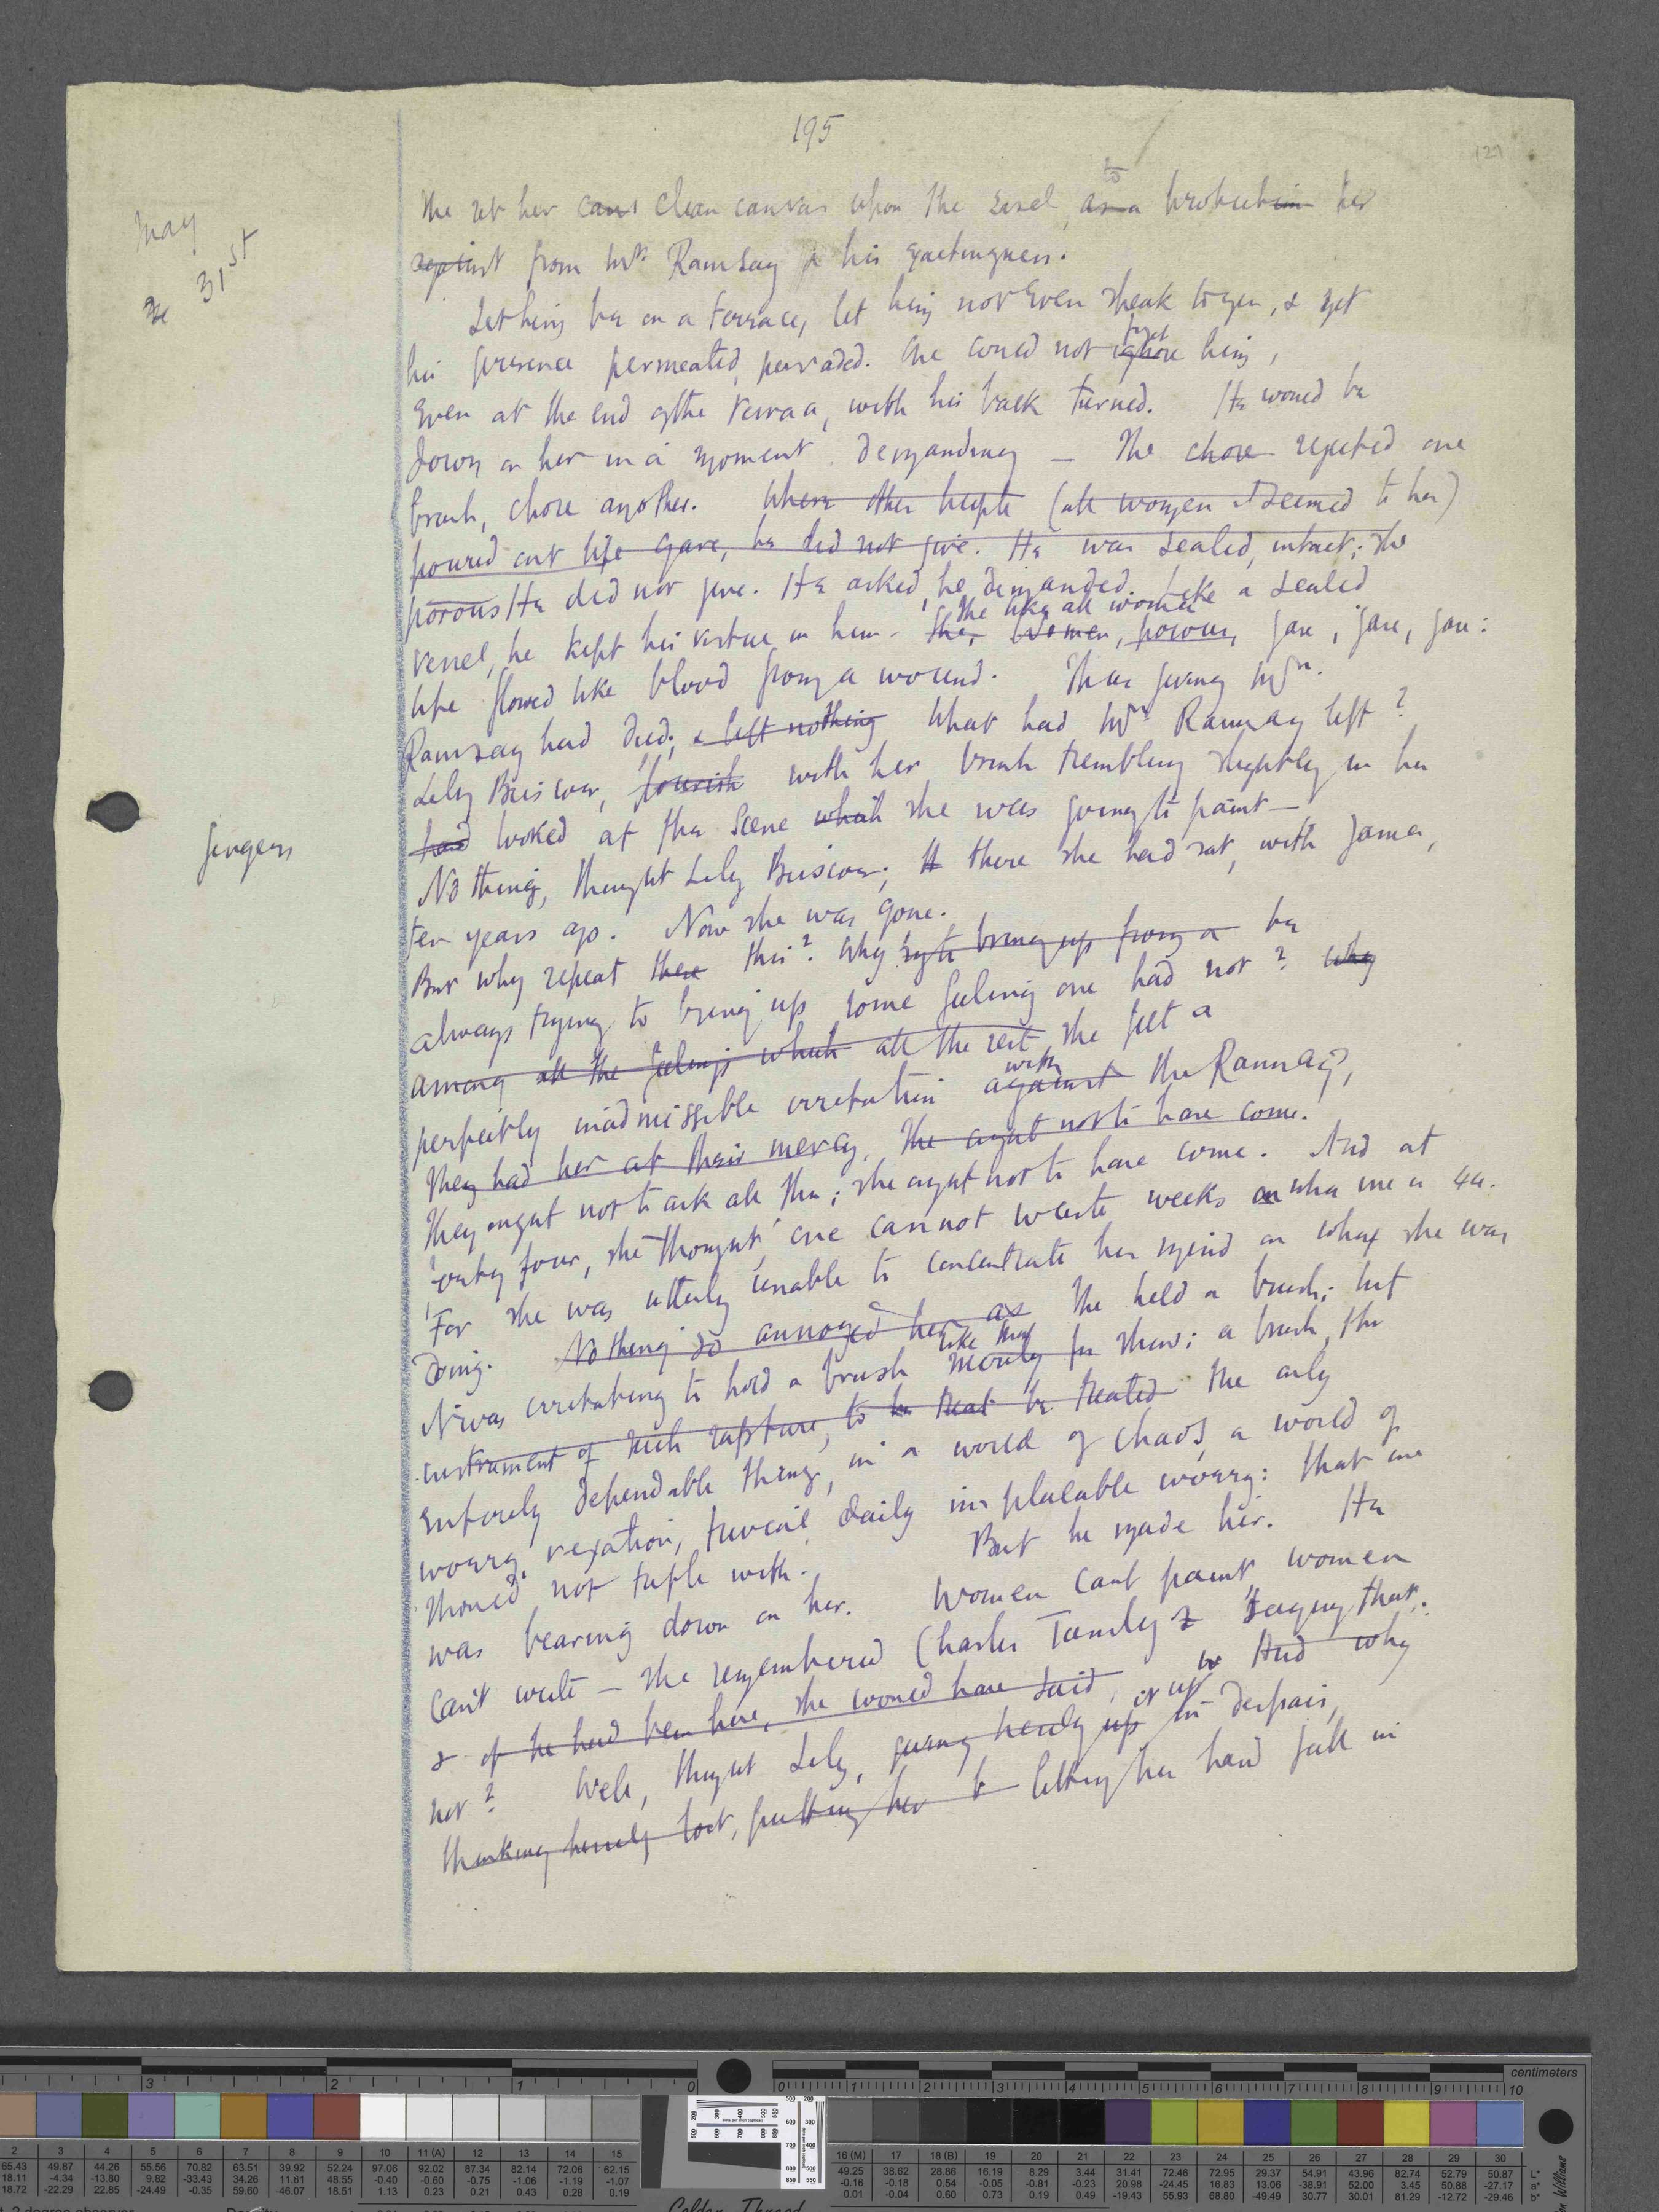 195
121
May
31st
She set her canvs clean canvas upon the easel, as a to protection her
against from Mr. Ramsay & his exactingness.
Let him be on a terrace, let him not even speak to you, & yet
his presence permeated, pervaded. One could not ignore forget him,
even at the end of the terrace, with his back turned. He would be
down on her in a moment demanding — She chose rejected one
brush, chose another. Where other people (all women it seemed to her)
poured out life gave, he did not give. He was sealed, intact; she
porous He did not give. He asked, he demanded. Like a sealed
vessel, he kept his virtue in him. She, She like all women women, porous, gave, gave, gave:
life flowed like blood from a wound. Thus giving Mrs.
Ramsay had died; & left nothing What had Mrs Ramsay left?
Lily Briscoe, with her brush trembling slightly in her
fingers
hand looked at the scene which she was going to paint —
Nothing, thought Lily Briscoe; there she had sat, with James,
ten years ago. Now she was gone.
But why repeat there this? Why bring up from a be
always trying to bring up some feeling one had not? Why
among all the feelings which all the rest she felt a
perfectly inadmissible irritation against with the Ramsays,
They had her at their mercy. She ought not to have come.
They ought not to ask all this; she ought not to have come. And at
forty four, she thought, one cannot waste weeks when one is 44.
For she was utterly unable to concentrate her mind on what she was
doing. Nothing so annoyed her as She held a brush; but
it was irritating to hold a brush like that merely for show; a brush, the
instrument of such rapture, to be treat be treated the only
entirely dependable thing, in a world of chaos, a world of
worry, vexation, turmoil, daily implacable worry: that one
should not trifle with. But he made her. He
was bearing down on her. Women cant paint women
can't write — She remembered Charles Tansley saying that:
& if he had been here, she would have said, And why
not? Well, thought Lily, giving herself up it up in despair,
thinking herself lost, putting her letting her hand fall in
Golden Thread
centimeters